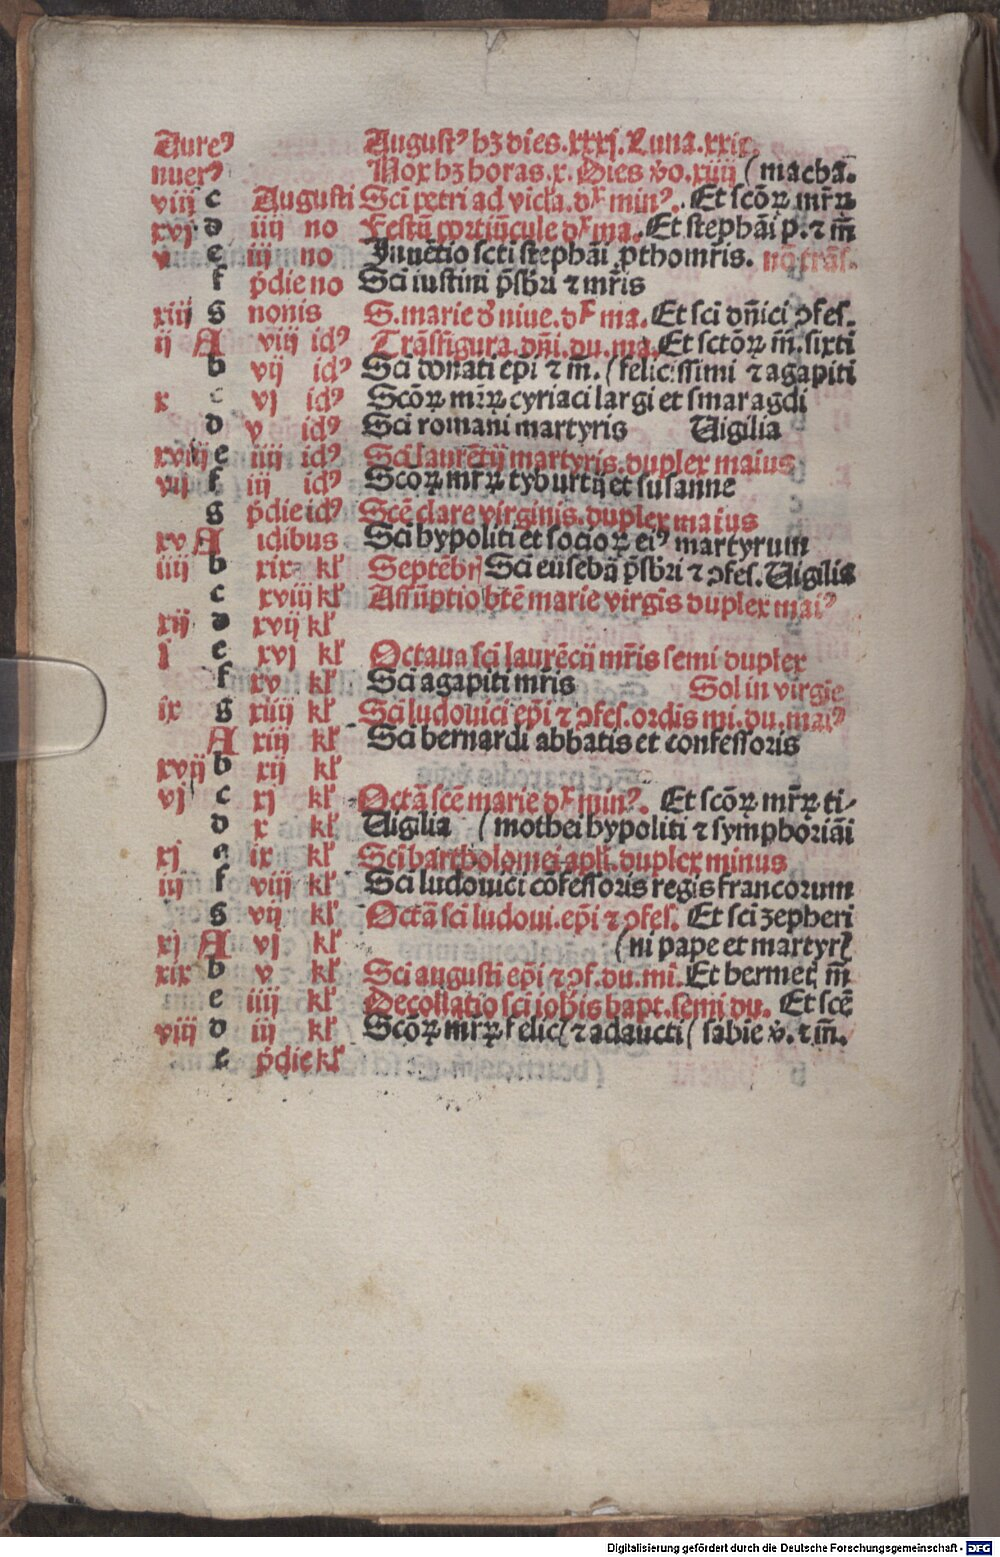 Aureꝰ Augustꝰ hꝫ dies. xxxj. Luna. xxix.
nuerꝰ Nox hꝫ horas. x. Dies ꝟo. xiiij ( macha.
viij c Augusti Sci petri ad vicla. dꝛ minꝰ. Et scōꝝ mr̄ꝝ
xvj d iiij no Festū portiūcule dꝛ ma. Et stephāi p. ⁊ m̄
v e iij no Inuētio scti stephāi ꝓthomr̄is. nō trās.
f p̄die no Sci iustini p̄sbri ⁊ mr̄is
xiij g nonis S. marie d niue. dꝛ ma. Et sci dn̄ici ɔfes.
ij A viij idꝰ Trāsfigura. dn̄i. du. ma. Et sctōꝝ m̄. sixti
b vij idꝰ Sci donati ep̄i ⁊ m̄. ( felicissimi ⁊ agapiti
x c vj idꝰ Scōꝝ mr̄ꝝ cyriaci largi et smaragdi
d v idꝰ Sci romani martyris Uigilia
xviij e iiij idꝰ Sci laurētij martyris. duplex maius
vij f iij idꝰ Scōꝝ mr̄ꝝ tyburtij et susanne
g p̄die idꝰ Scē clare virginis. duplex maius
xv A idibus Sci hypoliti et socioꝝ eiꝰ martyrum
iiij b xix kl̓ Septēbr̄ Sci eusebii p̄sbri ⁊ ɔfes. Uigilis
c xviij kl̓ Assūptio btē marie virgīs duplex maiꝰ
xij d xvij kl̓
j e xvj kl̓ Octaua sci laurēcij mr̄is semi duplex
f xv kl̓ Sci agapiti mr̄is Sol in virgīe
ix g xiiij kl̓ Sci ludouici ep̄i ⁊ ɔfes. ordis mi. du. maiꝰ
A xiij kl̓ Sci bernardi abbatis et confessoris
xvij b xij kl̓
vj c xj kl̓ Octā scē marie dꝛ minꝰ. Et scōꝝ mr̄ꝝ ti-
d x kl̓ Uigilia ( mothei hypoliti ⁊ symphoriāi
xj e ix kl̓ Sci bartholomei apl̓i. duplex minus
iij f viij kl̓ Sci ludouici cōfessoris regis francorum
g vij kl̓ Octā sci ludoui. ep̄i ⁊ ɔfes. Et sci zepheri
xj A vj kl̓ ( ni pape et martyrꝭ
xix b v kl̓ Sci augusti ep̄i ⁊ ɔf. du. mi. Et hermetꝭ m̄
c iiij kl̓ Decollatio sci iohīs bapt. semi du. Et scē
viij d iij kl̓ Scōꝝ mr̄ꝝ felicꝭ ⁊ adaucti ( sabīe ꝟ. ⁊ m̄.
e p̄die kl̓
Digitalisierung gefördert durch die Deutsche Forschungsgemeinschaft - DFG